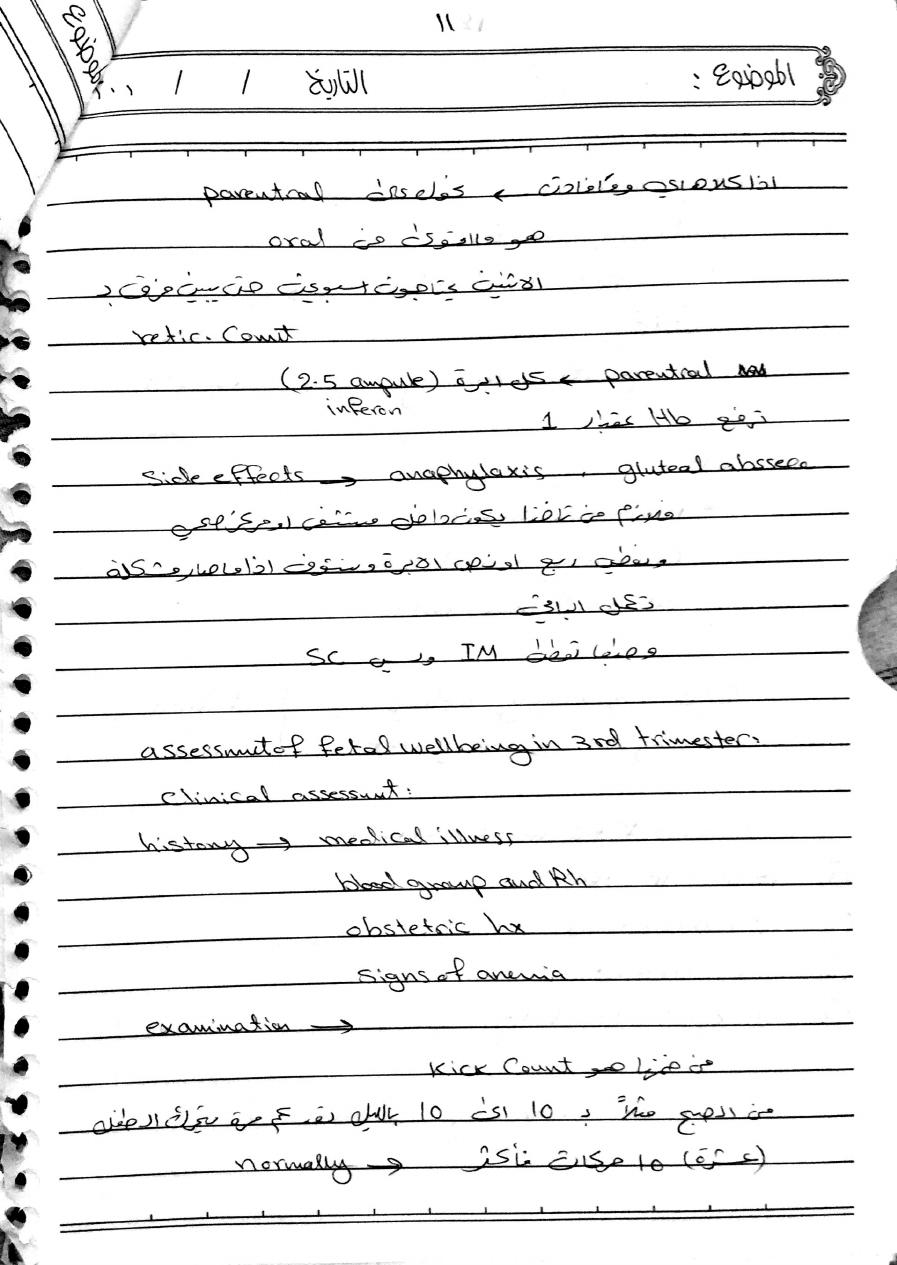 ١١
الموضوع :
التاريخ / / ٢٠٠١
اذا كلا هاي وما فادت ← parentral
هو والاقوى من oral
الاثنين يحتاجون اسبوعين حتى يبين فرق بـ
retic. Count
parentral ← كل ابرة (2.5 ampule)
inferon
ترفع Hb بمقدار 1
Side effects → anaphylaxis , gluteal abssec
فلازم من تاخذا يكون داخل مستشفى او مركز صحي
ونعطي ربع او نص الابرة وننتوقف اذا ما صار مشكلة
نكمل الباقي
وطبعا تعطى IM وليس SC
assessmutof fetal wellbeing in 3rd trimester:
Clinical assessmut:
history → medical illness
blood group and Rh
obstetric hx
Signs of anemia
examination →
من ضمنها هو Kick Count
من الصبح مثلاً بـ 10 الى 10 بالليل نعد كم مرة يتحرك الطفل
(عشرة) 10 حركات فأكثر → normally